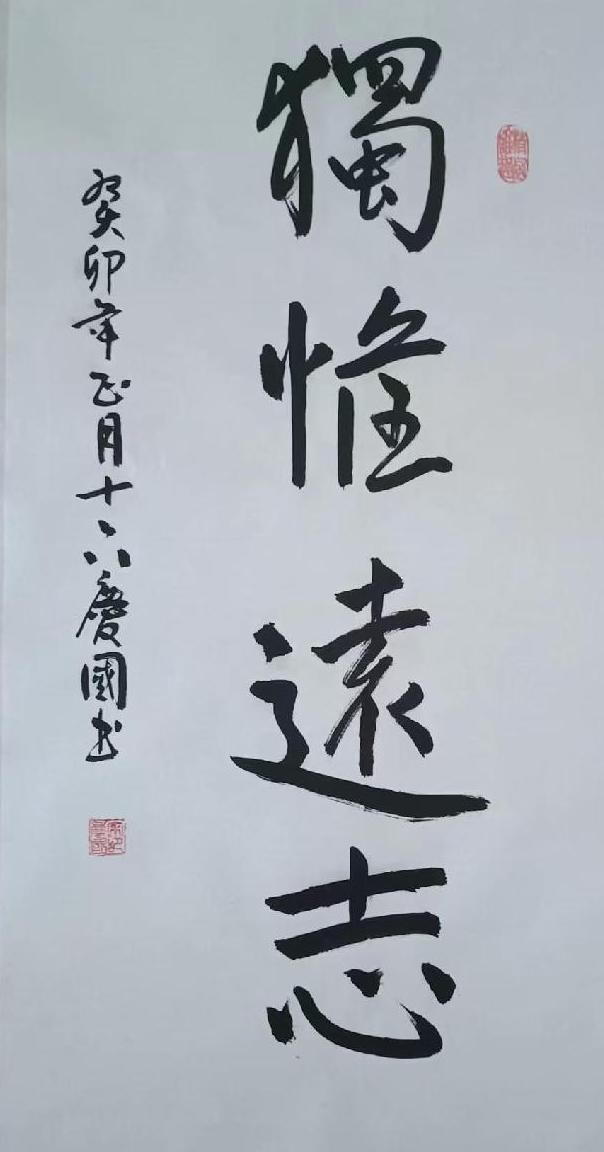 獨惟遠志
癸卯年正月十六慶國书